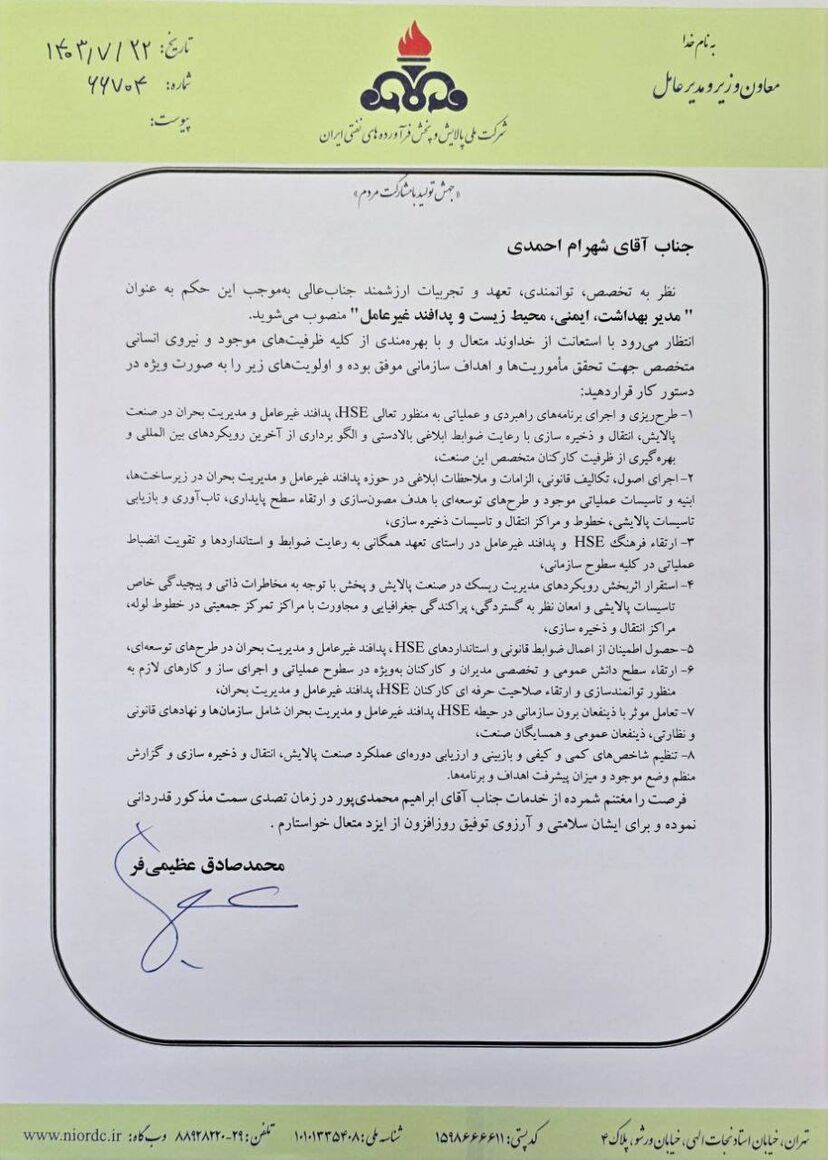 به نام خدا
معاون وزیر و مدیرعامل
شرکت ملی پالایش و پخش فرآورده های نفتی ایران
تاریخ: ۱۴۰۳/۷/۲۲
شماره: ۶۶۷۰۴
پیوست:
«جهش تولید با مشارکت مردم»
جناب آقای شهرام احمدی
نظر به تخصص، توانمندی، تعهد و تجربیات ارزشمند جناب‌عالی به‌موجب این حکم به عنوان
" مدیر بهداشت، ایمنی، محیط زیست و پدافند غیرعامل" منصوب می‌شوید.
انتظار می‌رود با استعانت از خداوند متعال و با بهره‌مندی از کلیه ظرفیت‌های موجود و نیروی انسانی
متخصص جهت تحقق مأموریت‌ها و اهداف سازمانی موفق بوده و اولویت‌های زیر را به صورت ویژه در
دستور کار قراردهید:
۱- طرح‌ریزی و اجرای برنامه‌های راهبردی و عملیاتی به منظور تعالی HSE، پدافند غیرعامل و مدیریت بحران در صنعت
پالایش، انتقال و ذخیره سازی با رعایت ضوابط ابلاغی بالادستی و الگو برداری از آخرین رویکردهای بین المللی و
بهره‌گیری از ظرفیت کارکنان متخصص این صنعت،
۲- اجرای اصول، تکالیف قانونی، الزامات و ملاحظات ابلاغی در حوزه پدافند غیرعامل و مدیریت بحران در زیرساخت‌ها،
ابنیه و تاسیسات عملیاتی موجود و طرح‌های توسعه‌ای با هدف مصون‌سازی و ارتقاء سطح پایداری، تاب‌آوری و بازیابی
تاسیسات پالایشی، خطوط و مراکز انتقال و تاسیسات ذخیره سازی،
۳- ارتقاء فرهنگ HSE و پدافند غیرعامل در راستای تعهد همگانی به رعایت ضوابط و استانداردها و تقویت انضباط
عملیاتی در کلیه سطوح سازمانی،
۴- استقرار اثربخش رویکردهای مدیریت ریسک در صنعت پالایش و پخش با توجه به مخاطرات ذاتی و پیچیدگی خاص
تاسیسات پالایشی و امعان نظر به گستردگی، پراکندگی جغرافیایی و مجاورت با مراکز تمرکز جمعیتی در خطوط لوله،
مراکز انتقال و ذخیره سازی،
۵- حصول اطمینان از اعمال ضوابط قانونی و استانداردهای HSE، پدافند غیرعامل و مدیریت بحران در طرح‌های توسعه‌ای،
۶- ارتقاء سطح دانش عمومی و تخصصی مدیران و کارکنان به‌ویژه در سطوح عملیاتی و اجرای ساز و کارهای لازم به
منظور توانمندسازی و ارتقاء صلاحیت حرفه ای کارکنان HSE، پدافند غیرعامل و مدیریت بحران،
۷- تعامل موثر با ذینفعان برون سازمانی در حیطه HSE، پدافند غیرعامل و مدیریت بحران شامل سازمان‌ها و نهادهای قانونی
و نظارتی، ذینفعان عمومی و همسایگان صنعت،
۸- تنظیم شاخص‌های کمی و کیفی و بازبینی و ارزیابی دوره‌ای عملکرد صنعت پالایش، انتقال و ذخیره سازی و گزارش
منظم وضع موجود و میزان پیشرفت اهداف و برنامه‌ها.
فرصت را مغتنم شمرده از خدمات جناب آقای ابراهیم محمدی‌پور در زمان تصدی سمت مذکور قدردانی
نموده و برای ایشان سلامتی و آرزوی توفیق روزافزون از ایزد متعال خواستارم .
محمدصادق عظیمی‌فر
تهران، خیابان استاد نجات الهی، خیابان ورشو، پلاک ۴ کد پستی: ۱۵۹۸۶۶۶۶۱۱ شناسه ملی: ۱۰۱۰۱۳۳۵۴۰۸ تلفن: ۲۹-۸۸۹۲۸۲۲۰ وب گاه: www.niordc.ir